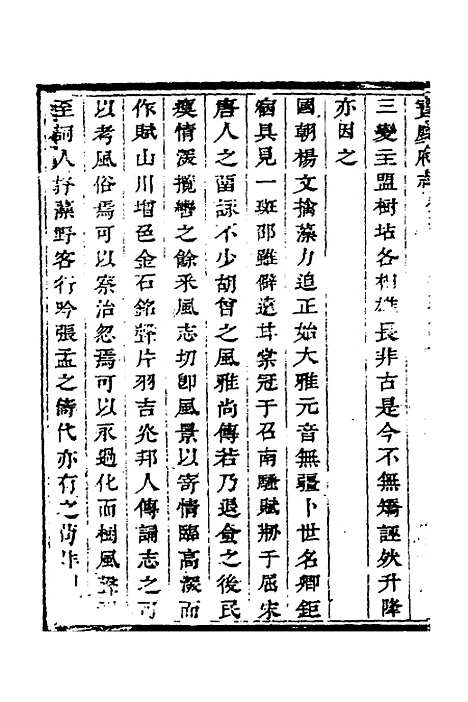 寶慶府志
三變主盟樹坫各相雄長非古是今不無矯誣然升降
亦因之
國朝楊文擒藻力追正始大雅元音無疆卜世名卿鉅
病具見一斑邵雖僻遠甘棠冠于召南騷賦剏于屈宋
唐人之留詠不少胡曾之風雅尚傳若乃退食之後民
瘼情深攬轡之餘采風志切卽風景以寄情臨高深而
作賦山川增色金石銘聲片羽吉光邦人傳誦志之可
以考風俗焉可以察治忽焉可以永過化而樹風聲
至詞人舒藻野客行吟張孟之儔代亦有之苟非